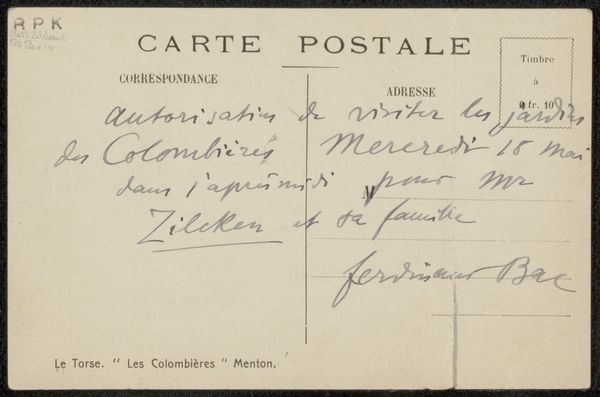 RPK
CARTE POSTALE
Timbre
à
0 fr. 10
CORRESPONDANCE
ADRESSE
autorisation de visiter les jardins
des Colombières Mercredi 18 mai
dans l'après midi pour Mr
M
Zilcken et sa famille
Ferdinand Bac
Le Torse. "Les Colombières" Menton.